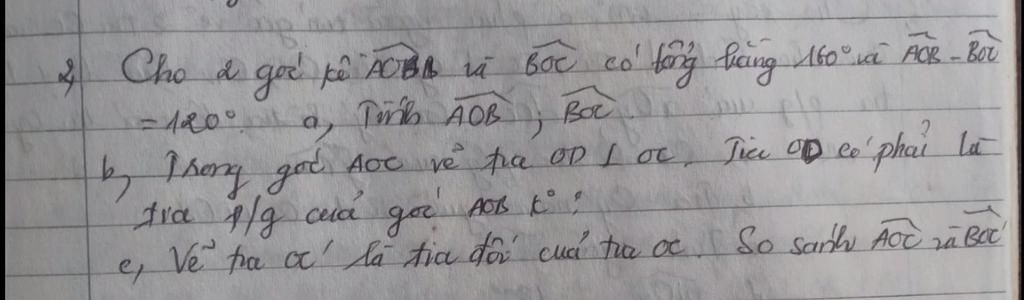 2, Cho 2 góc kề AOB và BOC có tổng bằng 160° và AOB - BOC
= 120°. a, Tính AOB, BOC
b, Trong góc AOC vẽ tia OD ⊥ OC. Tia OD có phải là
tia p/g của góc AOB k°?
c, Vẽ tia OC' là tia đối của tia OC. So sánh AOC và BOC'